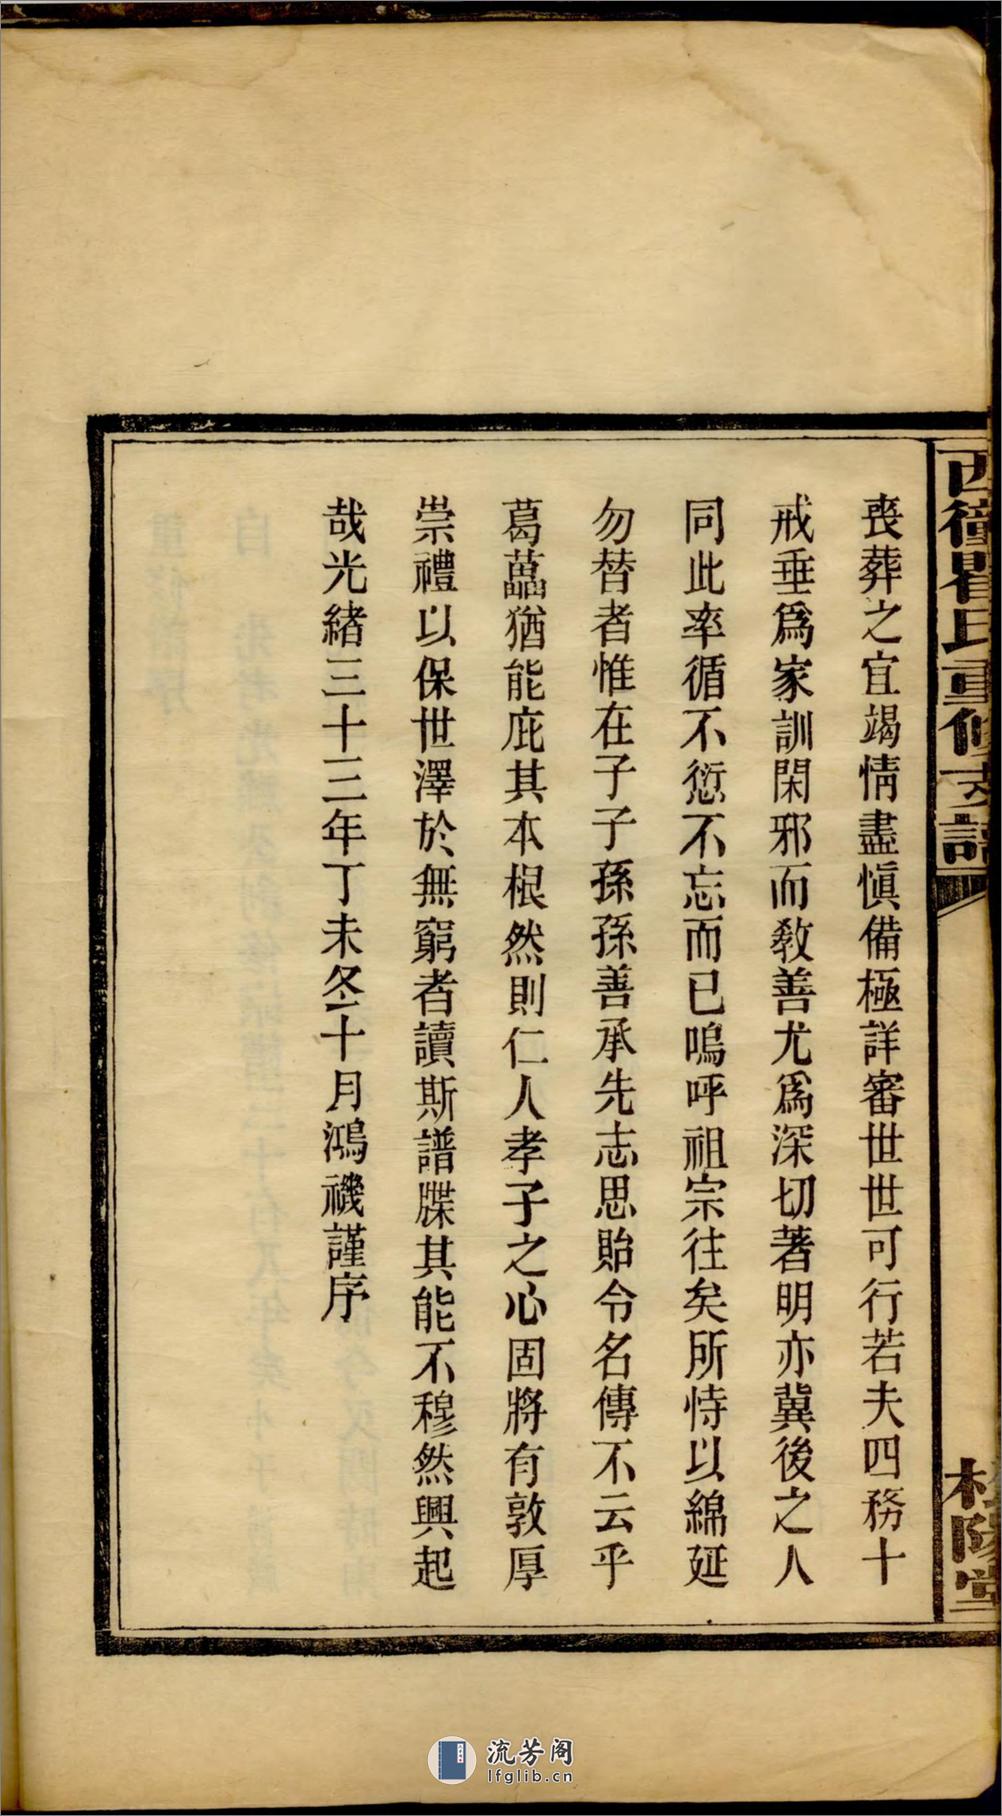 西衝瞿氏重修支譜
喪葬之宜竭情盡慎備極詳審世世可行若夫四務十
戒垂爲家訓閑邪而教善尤爲深切著明亦冀後之人
同此率循不愆不忘而已嗚呼祖宗往矣所恃以綿延
勿替者惟在子子孫孫善承先志思貽令名傳不云乎
葛藟猶能庇其本根然則仁人孝子之心固將有敦厚
崇禮以保世澤於無窮者讀斯譜牒其能不穆然興起
哉光緒三十三年丁未冬十月鴻禨謹序
流芳阁
lfglib.cn